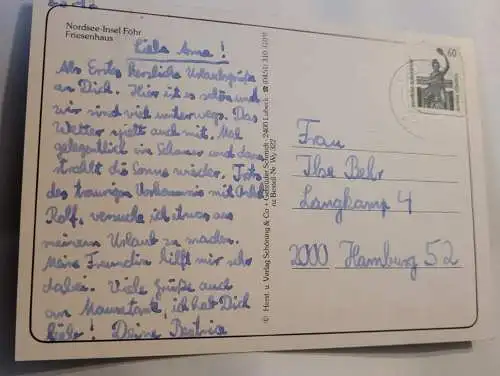 Nordsee-Insel Föhr
Friesenhaus
Liebe Oma!
Als Erstes herzliche Urlaubsgrüße
an Dich. Hier ist es schön und
wir sind viel unterwegs. Das
Wetter spielt auch mit. Mal
gelegentlich ein Schauer und dann
strahlt die Sonne wieder. Trotz
des traurigen Vorkommnis mit
Rolf, versuche ich etwas aus
meinem Urlaub zu machen.
Meine Freundin hilft mir sehr
dabei. Viele Grüße auch
an ich hab Dich
lieb! Deine Beatrice
© Herst. u. Verlag Schöning & Co + Gebrüder Schmidt · 2400 Lübeck
Bestell-Nr.
60
Frau
Ilse Behr
Langkamp 4
2000 Hamburg 52